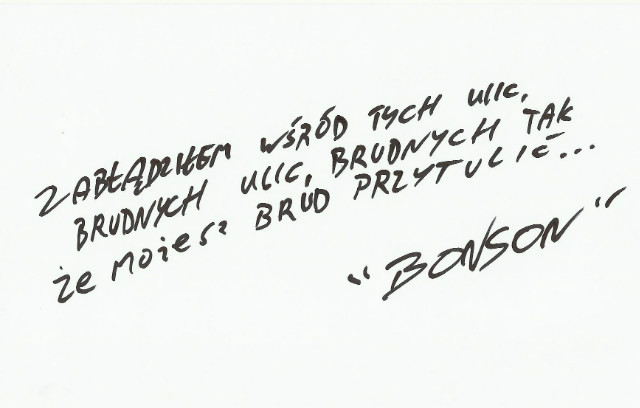 ZABŁĄDZIŁEM WŚRÓD TYCH ULIC,
BRUDNYCH ULIC, BRUDNYCH TAK
że MOżESZ BRUD PRZYTULIĆ...
"BONSON"